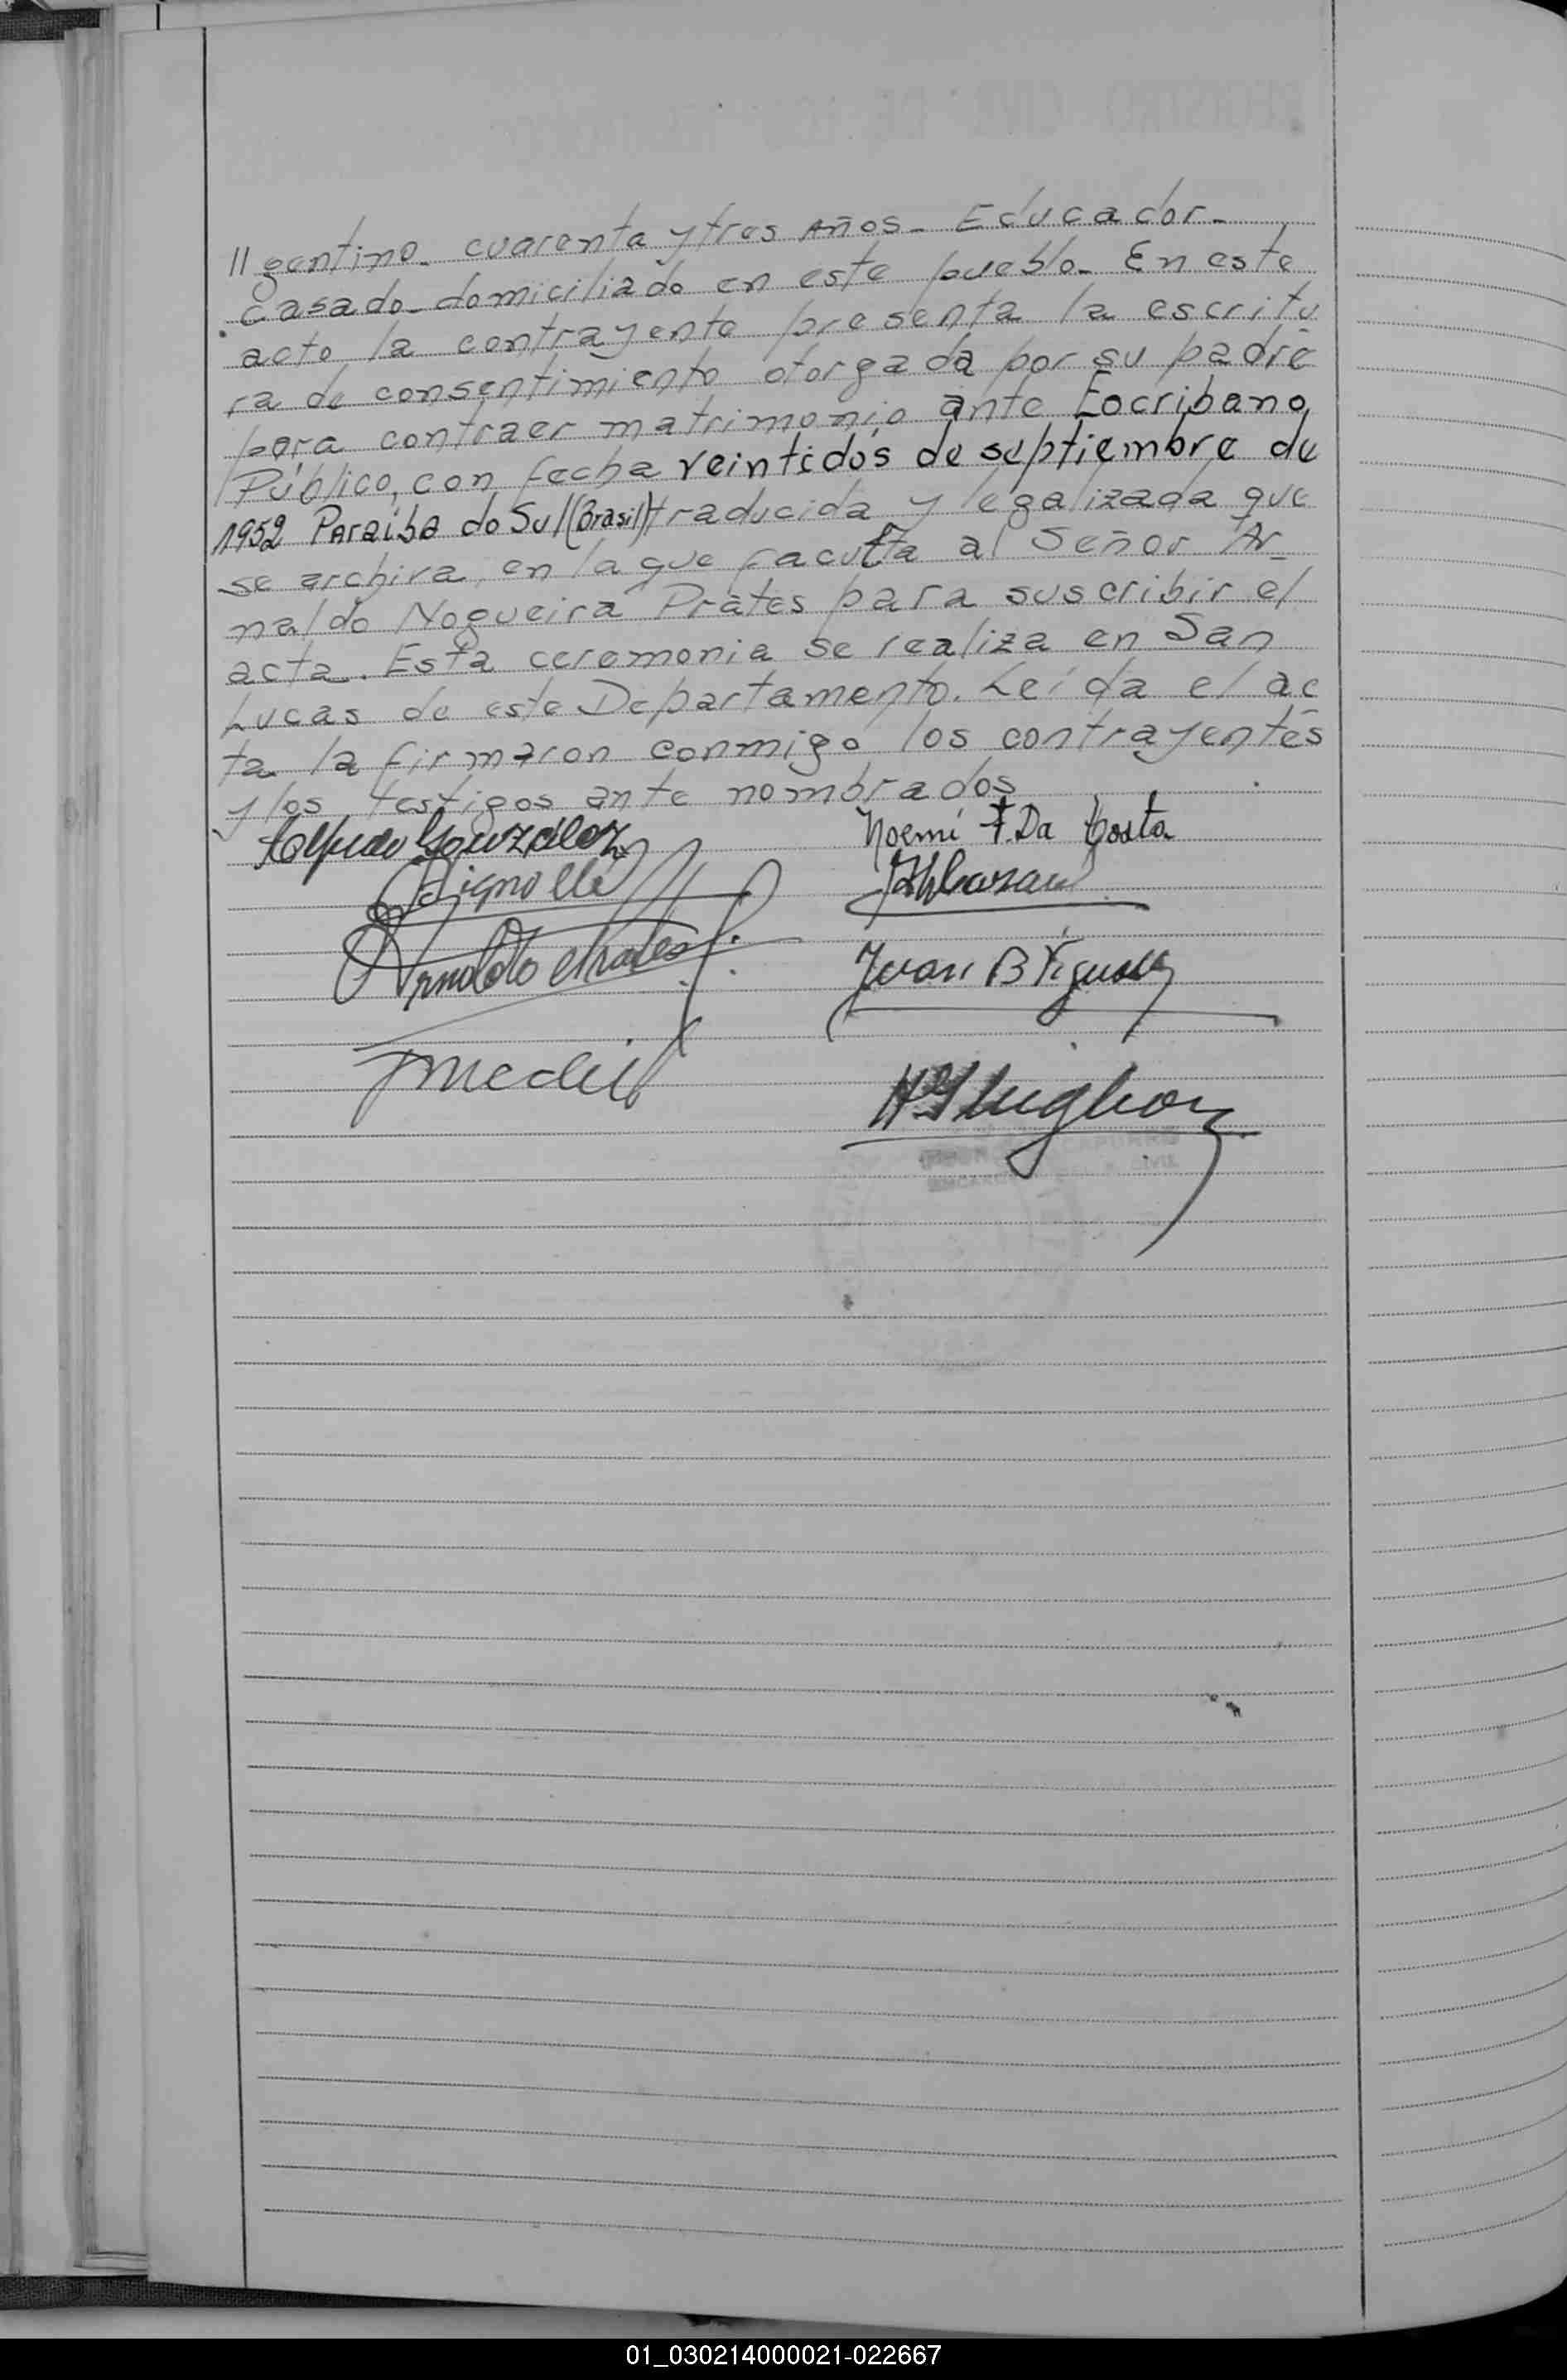 // gentino. cuarenta y tres Años - Educador -
casado - domiciliado en este pueblo - En este
acto la contrayente presenta la escritu
ra de consentimiento otorgada por su padre
para contraer matrimonio ante Escribano
Público, con fecha veintidós de septiembre de
1952 Paraiba do Sul (Brasil) traducida y legalizada que
se archiva, en la que faculta al Señor Ar-
naldo Nogueira Prates para suscribir el
acta. Esta ceremonia se realiza en San
Lucas de este Departamento. Leída el ac
ta la firmaron conmigo los contrayentes
y los testigos ante nombrados
Alfredo González Noemí F. Da Costa
Juan B Vignolle
01_030214000021-022667